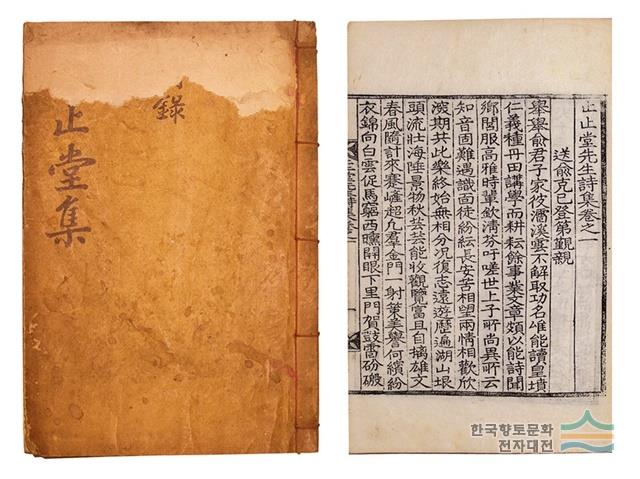 錄
止堂集
止止堂先生詩集卷之一
送俞克己登第覲親
犖犖俞君子家役濡溪雲不解取功名唯能讀皇墳
仁義種丹田講學而耕耘餘事業文章頗以能詩聞
鄉閭服高雅時輩欽淸芬吁嗟世上子所尚異所云
知音固難遇識面徒紛紜長安苦相望兩情相歡欣
期共此樂終始無相分况復志遠遊歷遍湖山垠
頭流壯海陲景物秋芸芸能收觀覽富且自摛雄文
春風隨計來蹇嵼超凢羣金門一射策美譽何繽紛
衣錦向白雲促馬窮西曛開眼下里門賀鼓雷砏磤
한국향토문화
전자대전